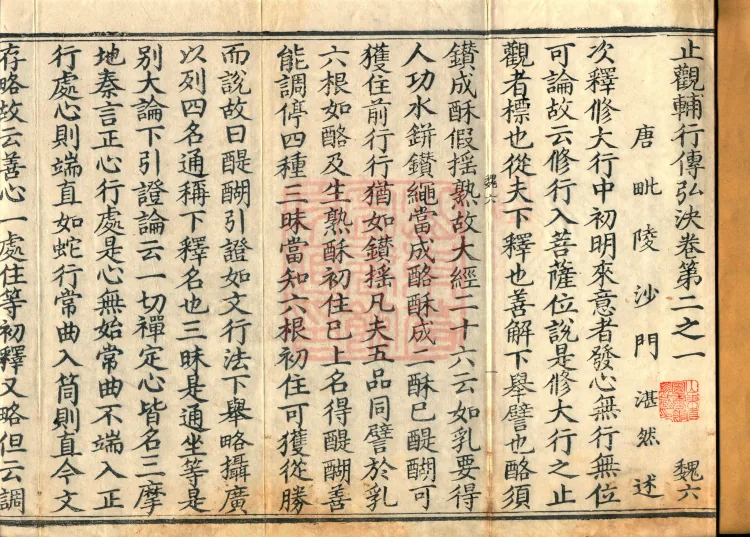 止觀輔行傳弘決卷第二之一 魏六
唐毗陵沙門湛然述
次釋修大行中初明來意者發心無行無位
可論故云修行入菩薩位說是修大行之止
觀者標也從夫下釋也善解下舉譬也酪須
魏六
鑚成酥假揺熟故大經二十六云如乳要得
人功水缾鑚繩當成酪酥成二酥已醍醐可
獲住前行行猶如鑚揺凡夫五品同譬於乳
六根如酪及生熟酥初住已上名得醍醐善
能調停四種三昧當知六根初住可獲從勝
而說故曰醍醐引證如文行法下舉略攝廣
以列四名通稱下釋名也三昧是通坐等是
別大論下引證論云一切禪定心皆名三摩
地秦言正心行處是心無始常曲不端入正
行處心則端直如蛇行常曲入筒則直今文
存略故云善心一處住等初釋又略但云調